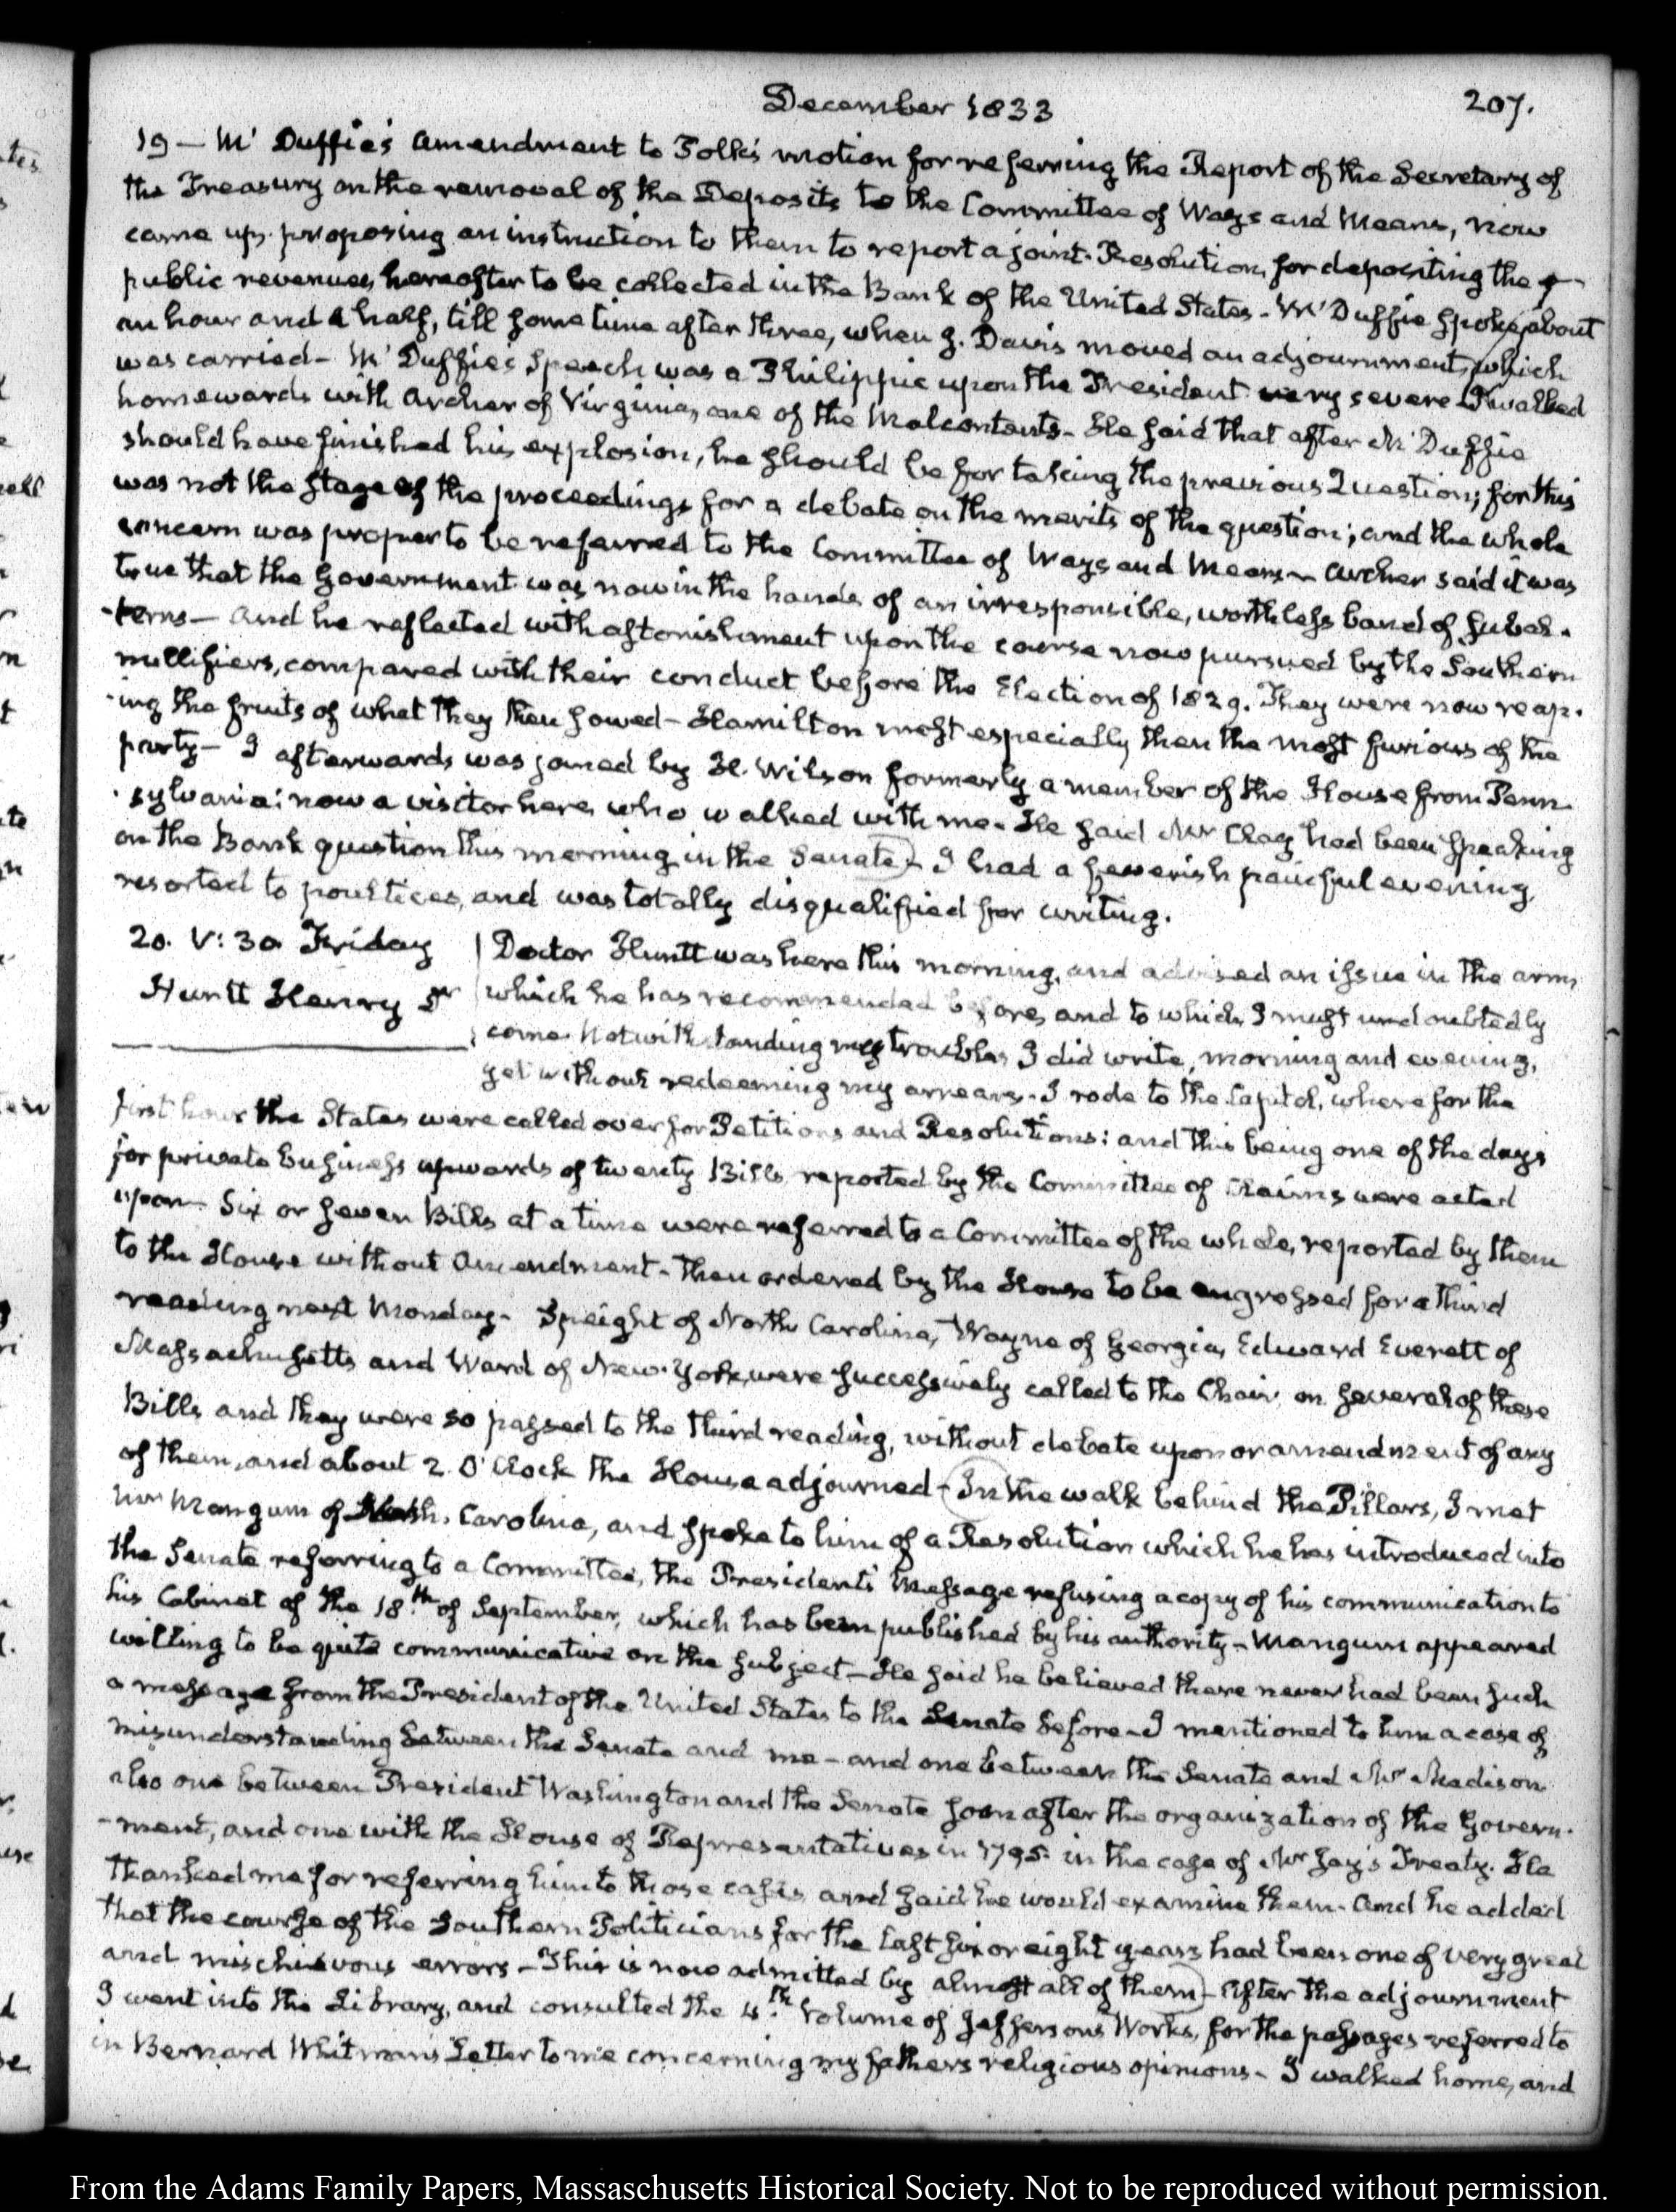 December 1833
207.
19 — McDuffie's amendment to Polk's motion for referring the Report of the Secretary of
the Treasury on the removal of the Deposits to the Committee of Ways and Means, now
came up. proposing an instruction to them to report a joint Resolution, for depositing the
public revenues, hereafter to be collected in the Bank of the United States — McDuffie spoke about
an hour and a half, till some time after three, when J. Davis moved an adjournment, which
was carried — McDuffie's Speech was a Philippic upon the President very severe I walked
homewards with Archer of Virginia, one of the Malcontents — He said that after McDuffie
should have finished his explosion, he should be for taking the previous Question; for this
was not the stage of the proceedings for a debate on the merits of the question; and the whole
concern was proper to be referred to the Committee of Ways and Means — Archer said it was
true that the Government was now in the hands of an irresponsible, worthless band of subal-
-terns — and he reflected with astonishment upon the course now pursued by the Southern
nullifiers, compared with their conduct before the Election of 1829. They were now reap-
-ing the fruits of what they then sowed — Hamilton most especially, then the most furious of the
party — I afterwards was joined by H. Wilson formerly a member of the House from Penn-
-sylvania: now a visitor here, who walked with me. He said Mr Clay had been speaking
on the Bank question this morning in the Senate — I had a feverish painful evening,
resorted to poultices, and was totally disqualified for writing.
20. V:30. Friday
Huntt Henry Dr
Doctor Huntt was here this morning, and advised an issue in the arm,
which he has recommended before, and to which I must undoubtedly
come. Notwithstanding my troubles I did write, morning and evening,
yet without redeeming my arrears. I rode to the Capitol, where for the
first hour the States were called over for Petitions and Resolutions: and this being one of the days
for private business upwards of twenty Bills, reported by the Committee of Claims were acted
upon. Six or seven Bills at a time were referred to a Committee of the whole, reported by them
to the House without Amendment — then ordered by the House to be engrossed for a third
reading next Monday. Speight of North Carolina, Wayne of Georgia, Edward Everett of
Massachusetts and Ward of New-York, were successively called to the Chair, on several of these
Bills and they were so passed to the third reading, without debate upon or amendment of any
of them, and about 2. O'Clock the House adjourned — In the walk behind the Pillars, I met
Mr Mangum of North Carolina, and spoke to him of a Resolution which he has introduced into
the Senate referring to a Committee, the President's Message refusing a copy of his communication to
his Cabinet of the 18th of September, which has been published by his authority — Mangum appeared
willing to be quite communicative on the subject — He said he believed there never had been such
a message from the President of the United States to the Senate before — I mentioned to him a case of
misunderstanding between the Senate and me — and one between the Senate and Mr Madison
also one between President Washington and the Senate soon after the organization of the Govern-
-ment, and one with the House of Representatives in 1795. in the case of Mr Jay's Treaty. He
thanked me for referring him to those cases and said he would examine them. And he added
that the course of the Southern Politicians for the last six or eight years had been one of very great
and mischievous errors — This is now admitted by almost all of them — After the adjournment
I went into the Library, and consulted the 4th Volume of Jefferson's Works, for the passages referred to
in Bernard Whitman's Letter to me concerning my father's religious opinions — I walked home, and
From the Adams Family Papers, Massachusetts Historical Society. Not to be reproduced without permission.